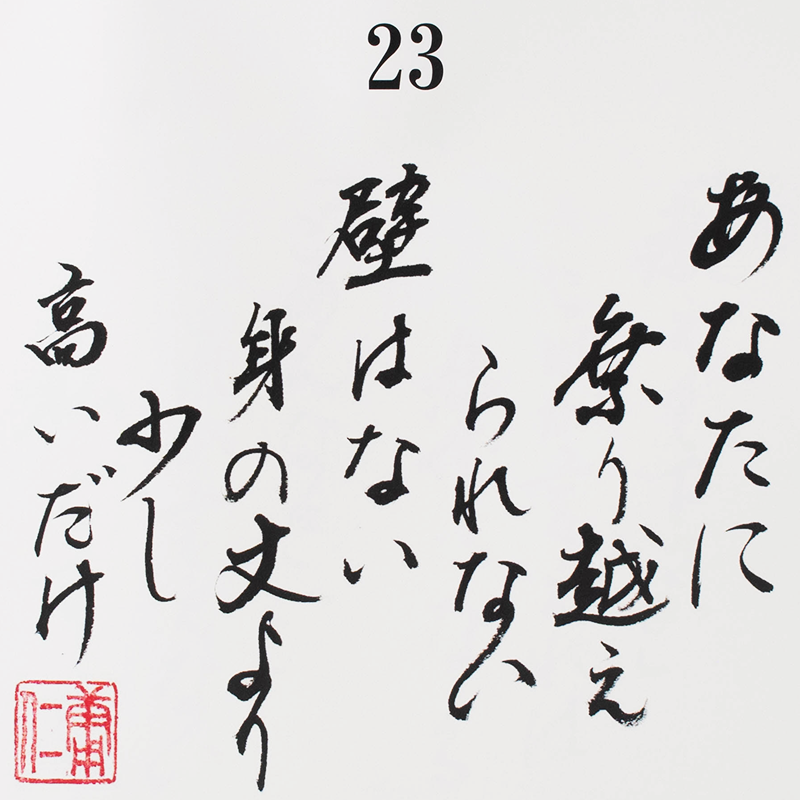 23
あなたに
乗り越え
られない
壁はない
身の丈より
少し
高いだけ